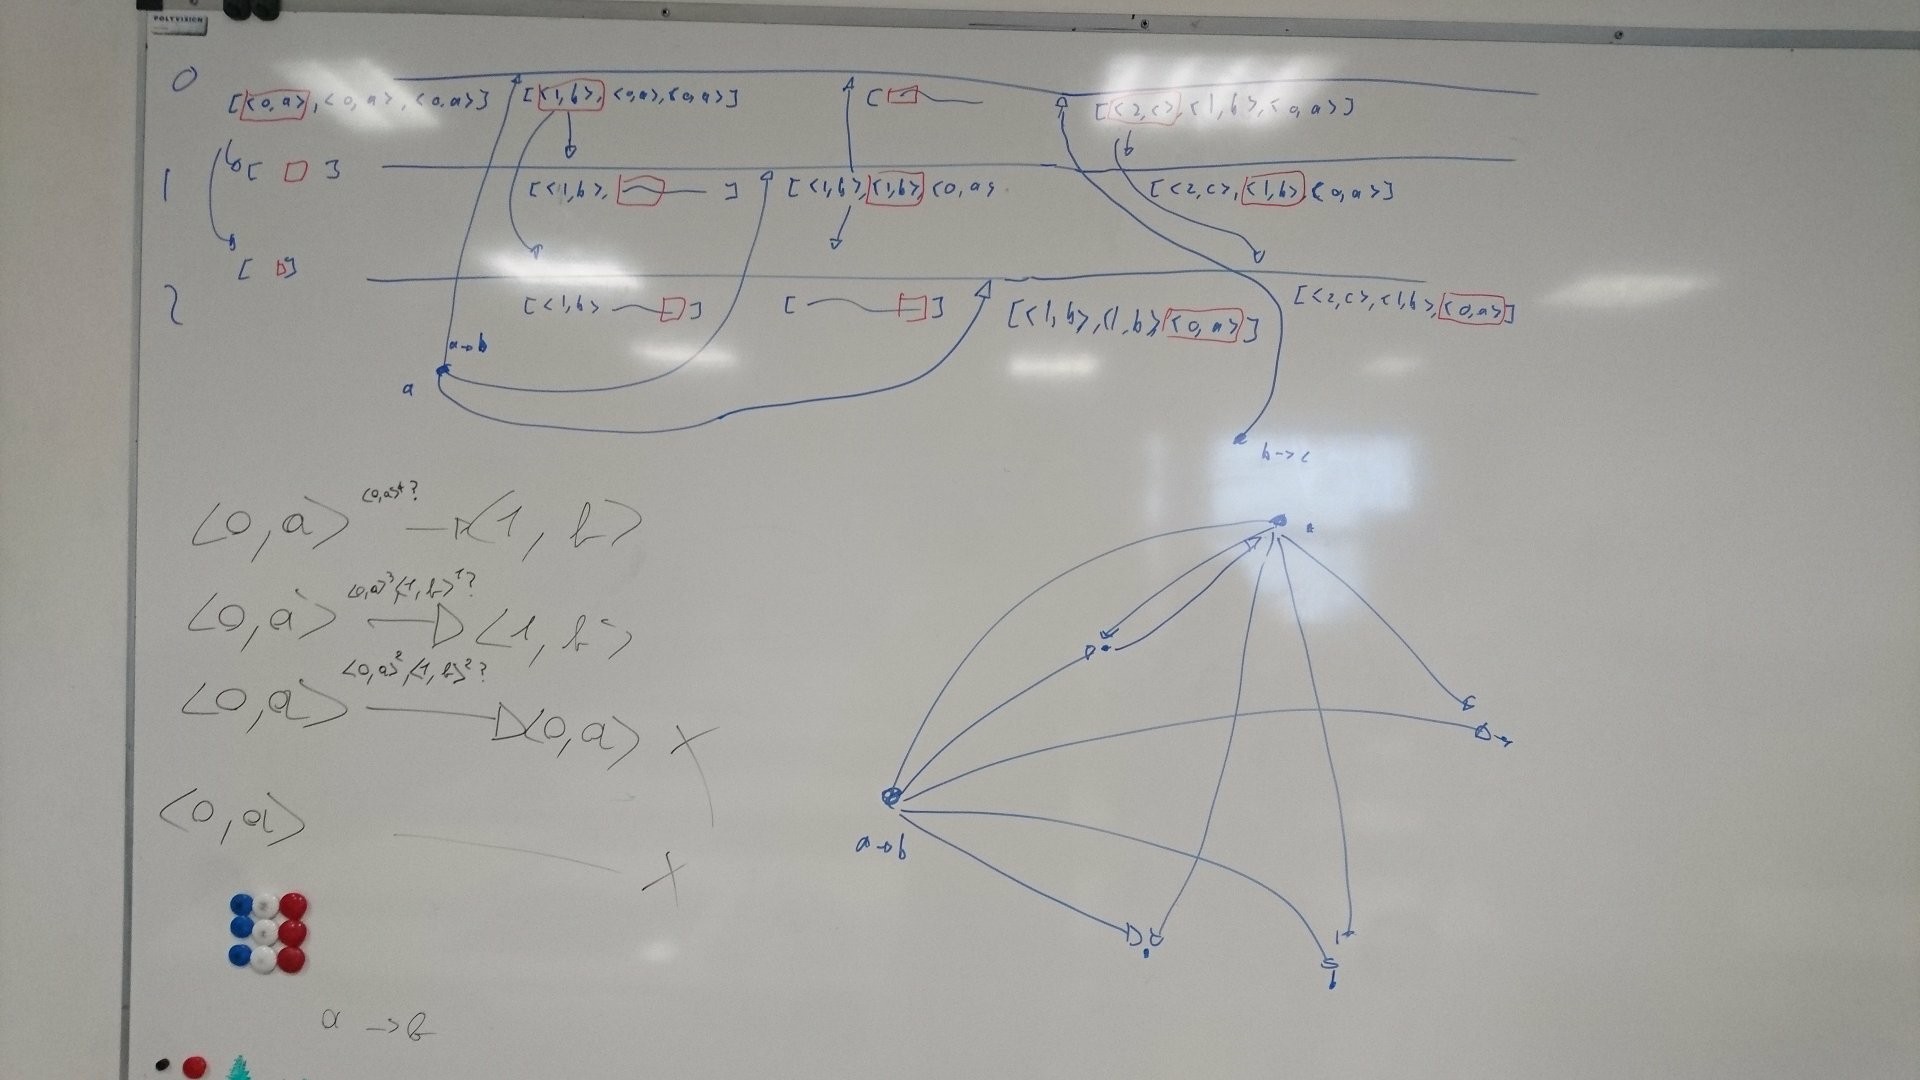 POLYVISION
0 [<0,a>,<0,a>,<0,a>] [<1,b>,<0,a>,<0,a>] [ [<2,c>,<1,b>,<0,a>]
1 [ ] [<1,b>, ] [<1,b>,<1,b>,<0,a> [<2,c>,<1,b>,<0,a>]
2 [ ] [<1,b> ] [ ] [<1,b>,<1,b>,<0,a>] [<2,c>,<1,b>,<0,a>]
a→b
a
b→c
<0,a>⁴?
<0,a> → <1,b>
<0,a>³,<1,b>¹?
<0,a> → <1,b>
<0,a>²,<1,b>²?
<0,a> → <0,a> X
<0,a> X
a→b
a → b